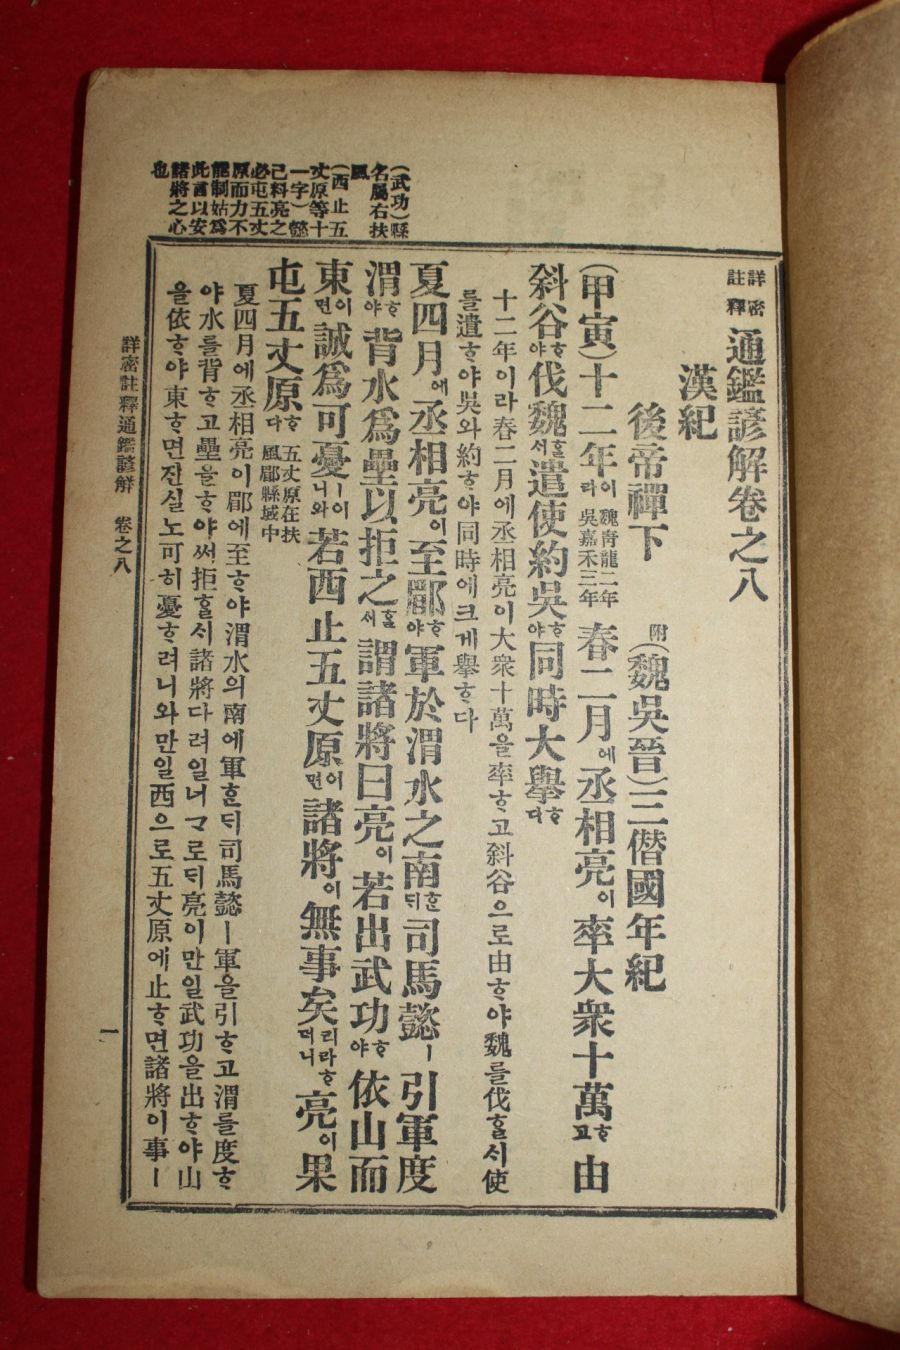 (武功)縣
名屬右扶
風
(西止五
丈原等十
一字)懿
己料亮之
必屯五丈
原而力不
能制姑爲
此言以安
諸將之心
也
詳密註釋 通鑑諺解卷之八
漢紀
後帝禪下 附(魏吳晉)三僭國年紀
(甲寅)十二年이라 魏靑龍二年 吳嘉禾三年 春二月에丞相亮이率大衆十萬ᄒᆞ고由
斜谷ᄒᆞ야伐魏ᄒᆞᆯᄉᆡ遣使約吳ᄒᆞ야同時大擧ᄒᆞ다
十二年이라春二月에丞相亮이大衆十萬을率ᄒᆞ고斜谷으로由ᄒᆞ야魏를伐ᄒᆞᆯᄉᆡ使
를遣ᄒᆞ야吳와約ᄒᆞ야同時에크게擧ᄒᆞ다
夏四月에丞相亮이至郿ᄒᆞ야軍於渭水之南ᄒᆞᆫᄃᆡ司馬懿ㅣ引軍度
渭ᄒᆞ야背水爲壘以拒之ᄒᆞᆯᄉᆡ謂諸將曰亮이若出武功ᄒᆞ야依山而
東이면誠爲可憂ㅣ어니와若西止五丈原이면諸將이無事矣리라ᄒᆞ더니亮이果
屯五丈原ᄒᆞ다 五丈原在扶風郿縣城中
夏四月에丞相亮이郿에至ᄒᆞ야渭水의南에軍ᄒᆞᆫᄃᆡ司馬懿ㅣ軍을引ᄒᆞ고渭를度ᄒᆞ
야水를背ᄒᆞ고壘을ᄒᆞ야써拒ᄒᆞᆯᄉᆡ諸將다려일너ᄀᆞ로ᄃᆡ亮이만일武功을出ᄒᆞ야山
을依ᄒᆞ야東ᄒᆞ면진실노可히憂ᄒᆞ려니와만일西으로五丈原에止ᄒᆞ면諸將이事ㅣ
詳密註釋通鑑諺解 卷之八 一